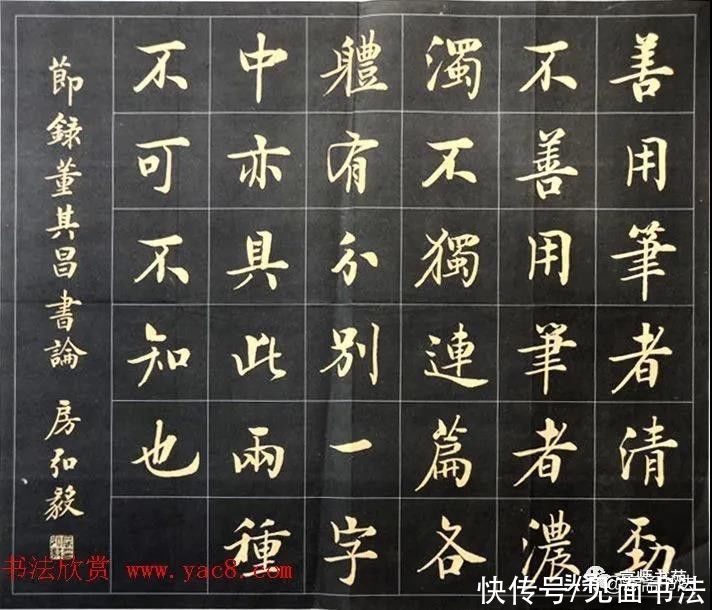 善用筆者清勁
不善用筆者濃
濁不獨連篇各
體有分別一字
中亦具此兩種
不可不知也
節錄董其昌書論 房弘毅
书法欣赏 www.yac8.com
快传号/见面书法